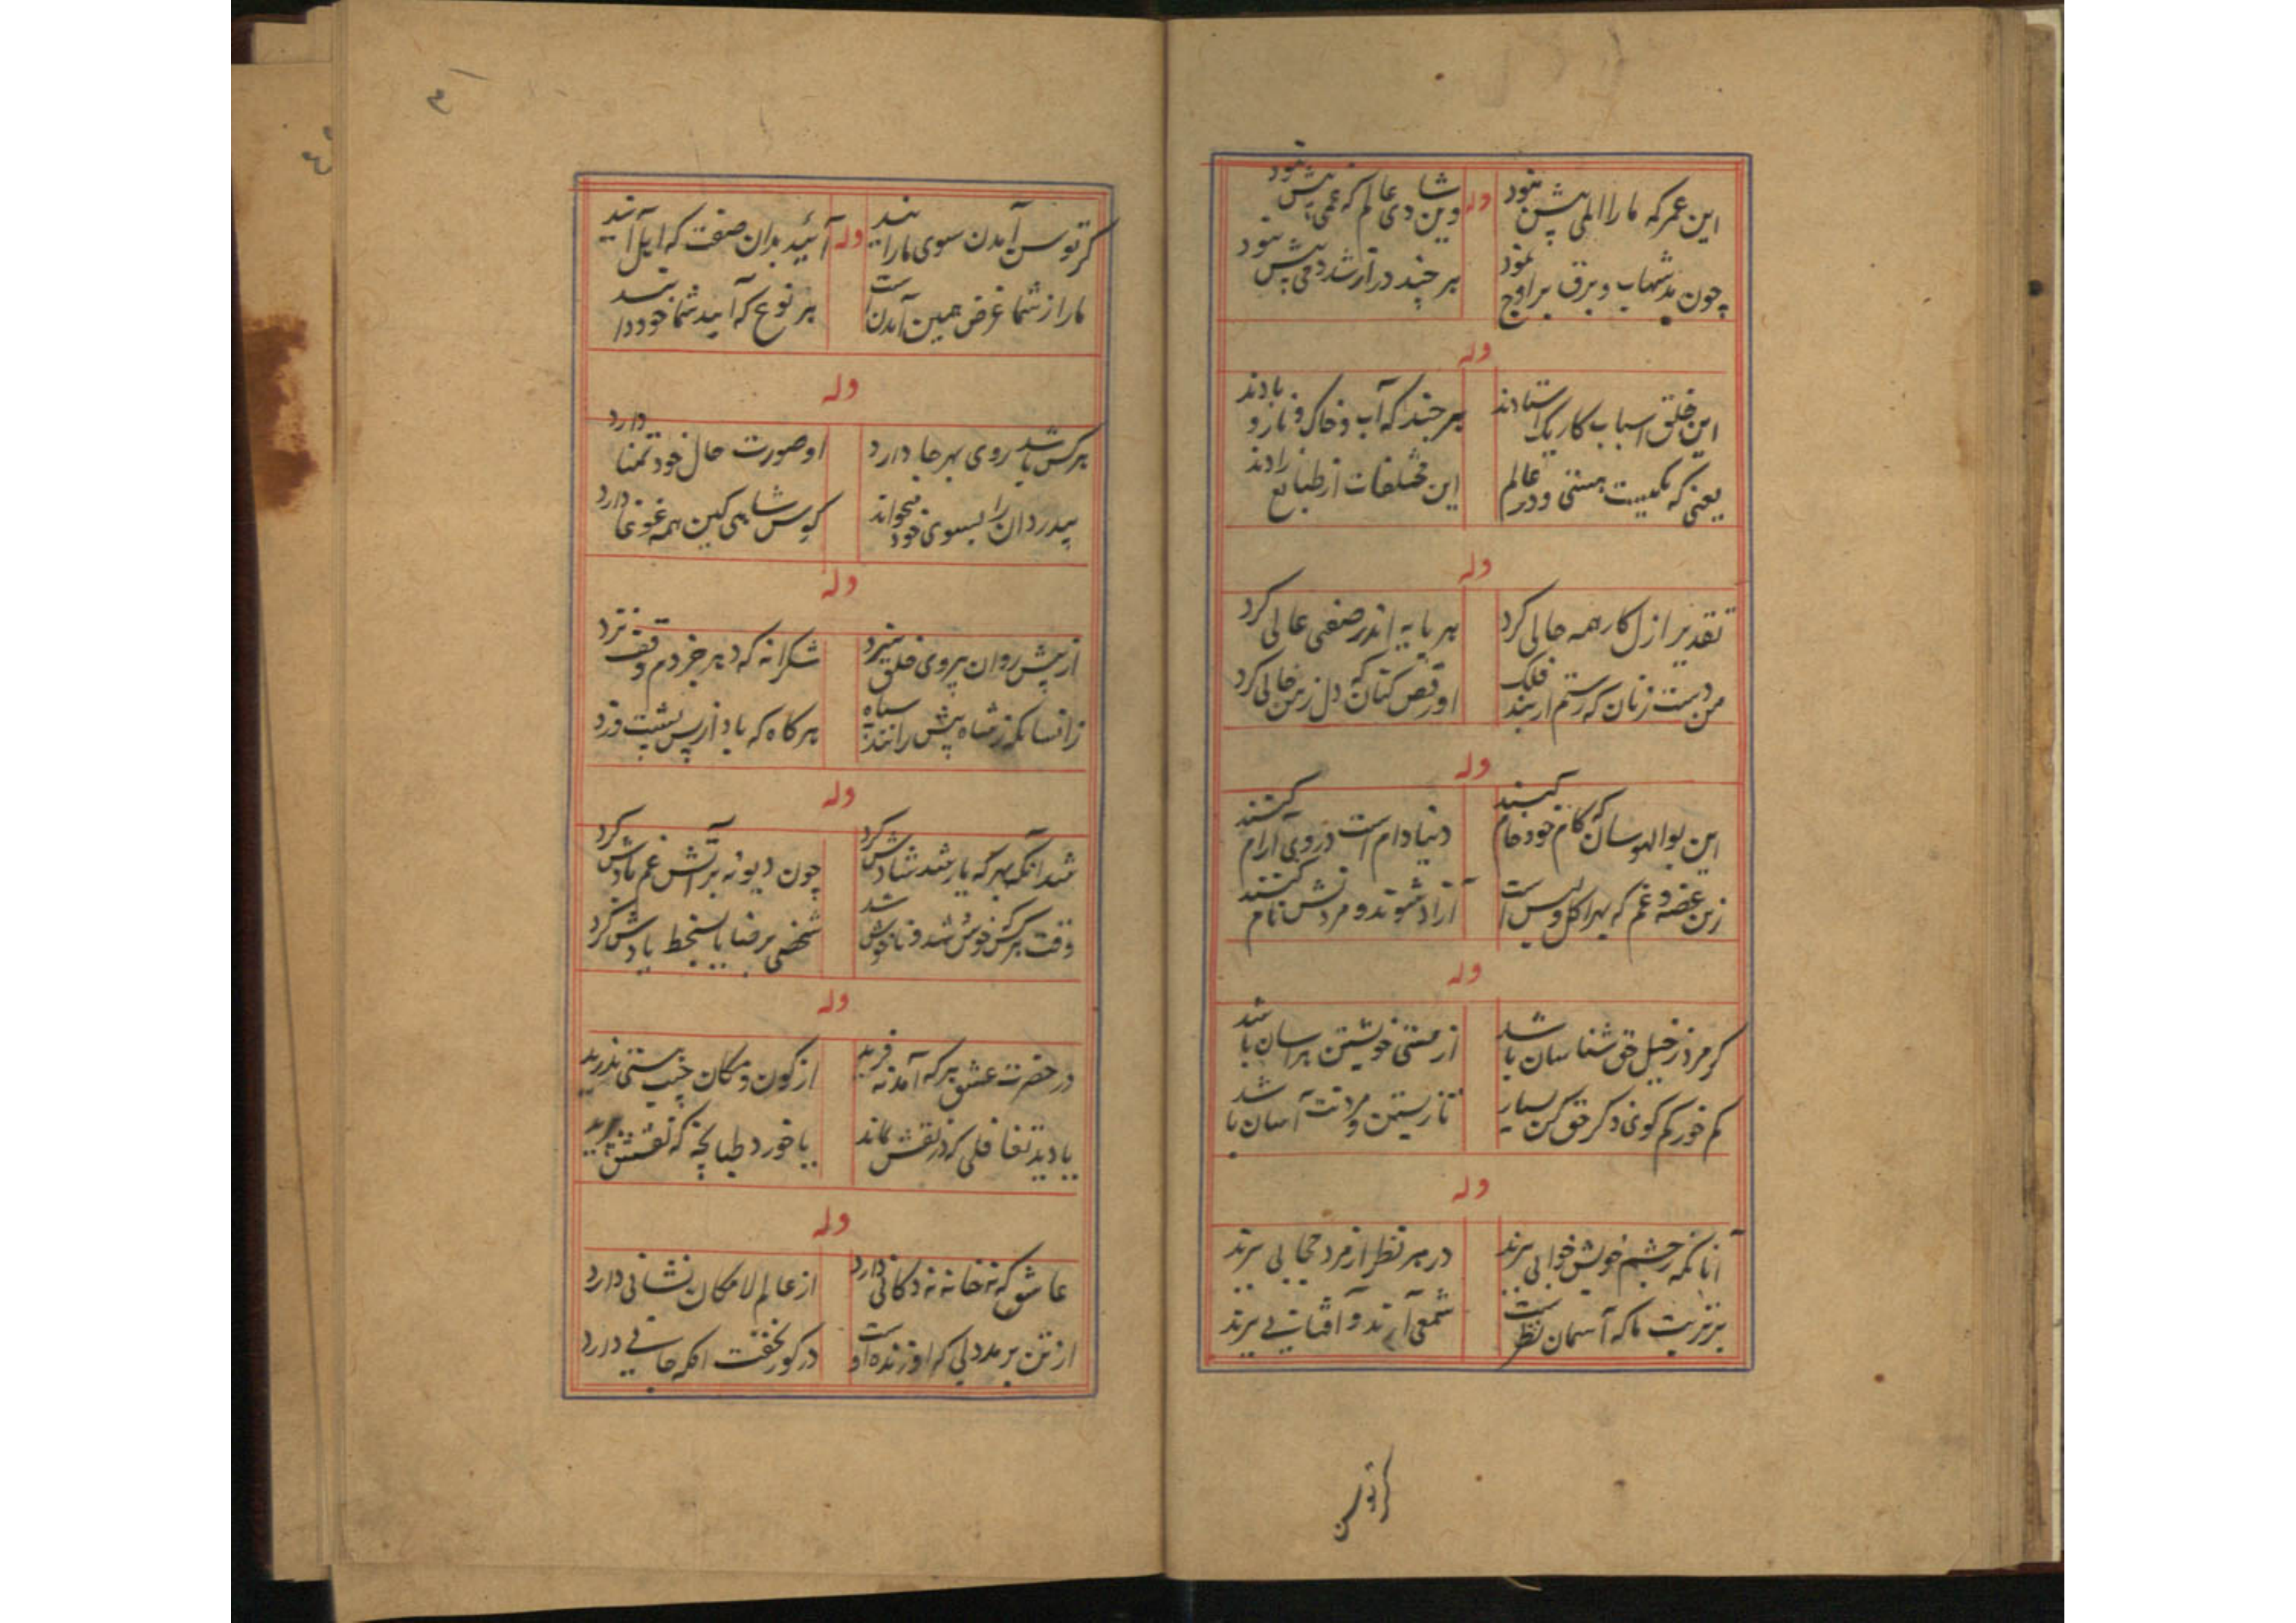 این عمر که ما را المی بیش نبود
وله
وین شادی عالم که غمی بیش نبود
چون مد شهاب و برق بر اوج نمود
هر چند دراز شد دمی بیش نبود
وله
این خلق اسباب کار یک استادند
هر چند که آب و خاک و نار و بادند
یعنی که یکیست هستی و در عالم
این مختلفات از طبایع زادند
وله
تقدیر ازل کار همه حالی کرد
هر پایه اندر صفتی عالی کرد
من دست زنان که رستم از بند فلک
او رقص کنان که دل ز من خالی کرد
وله
این بوالهوسان که کام خود خام کنند
دنیا دام است در وی آرام کنند
زین غصه و غم که
آزاد شوند و مردنش نام کنند
وله
گر مرد ز خیل حق شناسان باشد
از هستی خویشتن هراسان باشد
کم خور کم گوی و ذکر حق کن بسیار
تا زیستن و مردنت آسان باشد
وله
آنانکه ز چشم خویش خوابی برند
در هر نظر از مرد حجابی برند
بر تربت ما که آسمان نظر است
شمعی آرند و آفتابی برند
کر توسن
کر توسن آمدن سوی ما رانید
وله
آئید بدان صفت که اهل آنید
ما را ز شما غرض همین آمدن است
بر نوع که آیید شما خود دانید
وله
هر کس باشد روی بهر جا دارد
او صورت حال خود تمنا دارد
بیدردان را بسوی خود میخواند
کوس شاهی کین همه غوغا دارد
وله
از پیش روان پیروی خلق
شکرانه که دهر جز دم وقف نزد
زانسانکه ز شاه پیش رانند سپاه
هر کاه که باد از پس پشت وزد
وله
شد آنکه بهر که یار شد شادش کرد
چون دیونه بر آتش غم بادش کرد
وقت هر کس خوش شد و ناخوش شد
شخصی برضا یا بسخط یادش کرد
وله
در حضرت عشق هر که آمد نه فرید
از کون و مکان جیب هستی ندرید
یا دید تغافلی که در نقش بماند
یا خورد طپانچه که نقشش پرید
وله
عاشق که نه خانه نه دکانی دارد
از عالم لامکان نشانی دارد
از تن برمد دلی که او زنده اوست
در گور نخفت آنکه جانی دارد